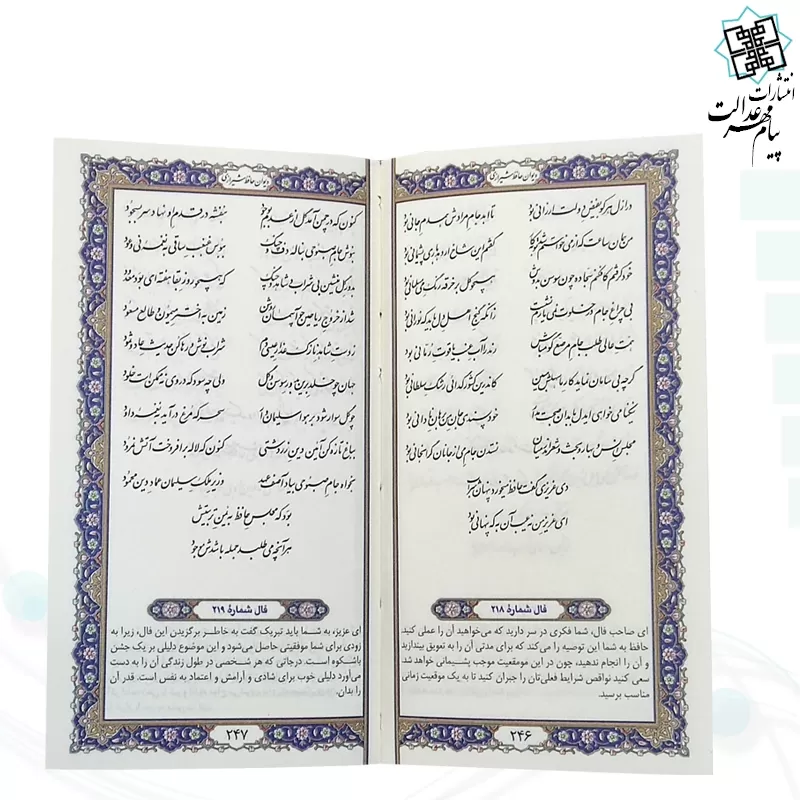 انتشارات
پیام مهر عدالت
دیوان حافظ شیرازی
در ازل هر کو به فیض دولت ارزانی بود تا ابد جام مرادش همدم جانی بود
من همان ساعت که از می خواستم شد توبه کار گفتم این شاخ ار دهد باری پشیمانی بود
خود گرفتم کافکنم سجاده چون سوسن به دوش همچو گل بر خرقه رنگ می مسلمانی بود
بی چراغ جام در خلوت نمی یارم نشست زانکه کنج اهل دل باید که نورانی بود
همت عالی طلب جام مرصع گو مباش رند را آب عنب یاقوت رمانی بود
گرچه بی سامان نماید کار ما سهلش مبین کاندرین کشور گدائی رشک سلطانی بود
نیکنامی خواهی ای دل با بدان صحبت مدار خودپسندی جان من برهان نادانی بود
مجلس انس و بهار و بحث شعر اندر میان نستدن جام می از جانان گرانجانی بود
دی عزیزی گفت حافظ میخورد پنهان شراب
ای عزیز من نه عیب آن به که پنهانی بود
فال شمارهٔ ۲۱۸
ای صاحب فال، شما فکری در سر دارید که می‌خواهید آن را عملی کنید.
حافظ به شما این توصیه را می‌کند که برای مدتی آن را به تعویق بیندازید
و آن را انجام ندهید، چون در این موقعیت موجب پشیمانی خواهد شد.
سعی کنید نواقص شرایط فعلی‌تان را جبران کنید تا به یک موقعیت زمانی
مناسب برسید.
۲۴۶
دیوان حافظ شیرازی
کنون که در چمن آمد گل از عدم به وجود بنفشه در قدم او نهاد سر به سجود
بنوش جام صبوحی بناله دف و چنگ ببوس غبغب ساقی به نغمه نی و عود
بدور گل منشین بی شراب و شاهد و چنگ که همچو روز بقا هفته ای بود معدود
شد از خروج ریاحین چو آسمان روشن زمین به اختر میمون و طالع مسعود
ز دست شاهد نازک عذار عیسی دم شراب نوش و رها کن حدیث عاد و ثمود
جهان چو خلد برین شد به دور سوسن و گل ولی چه سود که در وی نه ممکن است خلود
چو گل سوار شود بر هوا سلیمان وار سحر که مرغ درآید به نغمه داود
بباغ تازه کن آئین دین زردشتی کنون که لاله برافروخت آتش نمرود
بخواه جام صبوحی بیاد آصف عهد وزیر ملک سلیمان عماد دین محمود
بود که مجلس حافظ به یمن تربیتش
هر آنچه می طلبد جمله باشدش موجود
فال شمارهٔ ۲۱۹
ای عزیز، به شما باید تبریک گفت به خاطر برگزیدن این فال، زیرا به
زودی برای شما موفقیتی حاصل می‌شود و این موضوع دلیلی بر یک جشن
باشکوه است. درجاتی که هر شخصی در طول زندگی آن را به دست
می‌آورد دلیلی خوب برای شادی و آرامش و اعتماد به نفس است. قدر آن
را بدان.
۲۴۷